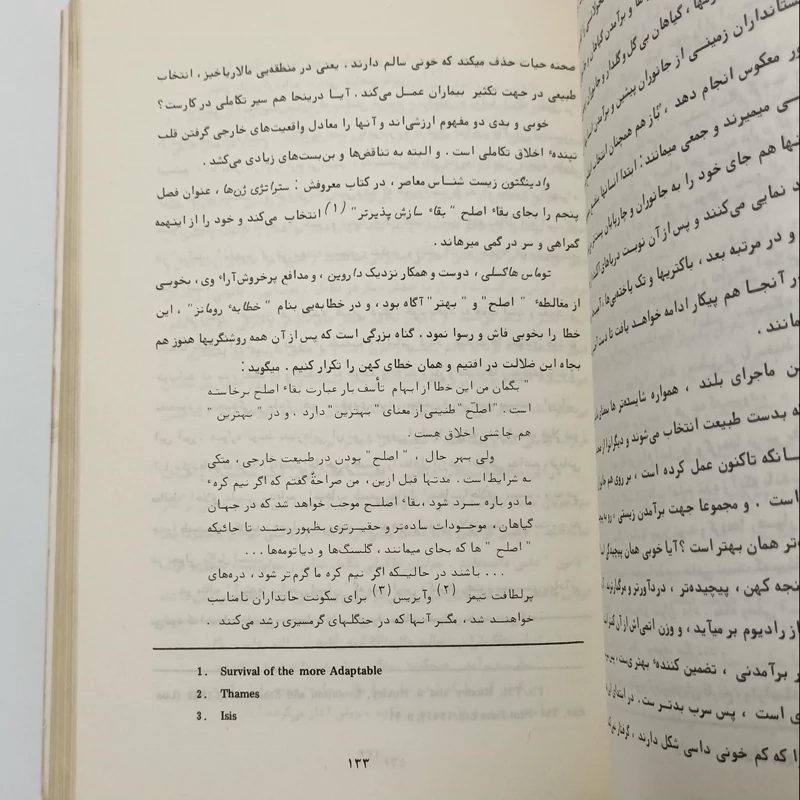 صحنه حیات حذف میکند که خونی سالم دارند . یعنی در منطقه‌یی مالاریاخیز ، انتخاب
طبیعی در جهت تکثیر بیماران عمل می‌کند . آیا دراینجا هم سیر تکاملی در کارست؟
خوبی و بدی دو مفهوم ارزشی‌اند و آنها را معادل واقعیت‌های خارجی گرفتن قلب
تپندهٔ اخلاق تکاملی است . و البته به تناقض‌ها و بن‌بست‌های زیادی می‌کشد .
وادینگتون زیست شناس معاصر ، در کتاب معروفش : ستراتژی ژن‌ها ، عنوان فصل
پنجم را بجای بقاء اصلح " بقاء سازش پذیرتر " (۱) انتخاب می‌کند و خود را از اینهمه
گمراهی و سر در گمی میرهاند .
توماس هاکسلی ، دوست و همکار نزدیک داروین ، و مدافع پرخروش آراء وی ، بخوبی
از مغالطهٔ " اصلح " و " بهتر " آگاه بود ، و در خطابه‌یی بنام " خطابهٔ رومانز " ، این
خطا را بخوبی فاش و رسوا نمود . گناه بزرگی است که پس از آن همه روشنگریها هنوز هم
بچاه این ضلالت در افتیم و همان خطای کهن را تکرار کنیم . میگوید :
" بگمان من این خطا از ابهام تأسف بار عبارت بقاء اصلح برخاسته
است . " اصلح " طنینی از معنای " بهترین " دارد . و در " بهترین "
هم چاشنی اخلاق هست .
ولی بهر حال ، " اصلح " بودن در طبیعت خارجی ، متکی
به شرایط است . مدتها قبل ازین ، من صراحةً گفتم که اگر نیم کرهٔ
ما دو باره سرد شود ، بقاء اصلح موجب خواهد شد که در جهان
گیاهان ، موجودات ساده‌تر و حقیرتری بظهور رسند تا جائیکه
" اصلح " ها که بجای میمانند ، گلسنگ‌ها و دیاتومه‌ها ...
... باشند در حالیکه اگر نیم کره ما گرم‌تر شود ، دره‌های
پرلطافت تیمز (۲) وآیزیس (۳) برای سکونت جانداران نامناسب
خواهند شد ، مگر آنها که در جنگلهای گرمسیری رشد می‌کنند .
1. Survival of the more Adaptable
2. Thames
3. Isis
۱۳۳
ستانداران زمینی از جانوران پیشین و برآمدن
ور معکوس انجام دهد ، باز هم همچنان انتخاب
سی میمیرند و جمعی میمانند : ابتدا انسانها
نها هم جای خود را به جانوران و چارپایان
د نمایی می‌کنند و پس از آن نوبت دریاهای
و در مرتبه بعد ، باکتریها و تک یاخته‌یی‌ها ،
ور آنجا هم پیکار ادامه خواهد یافت تا دست
مانند .
ین ماجرای بلند ، همواره شایسته‌تر ها
که بدست طبیعت انتخاب می‌شوند و
انکه تاکنون عمل کرده است ، بر روی هم
است . و مجموعا جهت برآمدن زیستی ،
‌تر همان بهتر است ؟ آیا خوبی همان پیچیدگی
نجه کهن ، پیچیده‌تر ، دردآورتر و مرگبارترند
از رادیوم بر میآید ، و وزن اتمی‌اش از آن
ر برآمدنی ، تضمین کنندهٔ بهتری‌ست ،
ی است ، پس سرب بدتر ست . در ابتدای
را که کم خونی داسی شکل دارند ، گرفتار